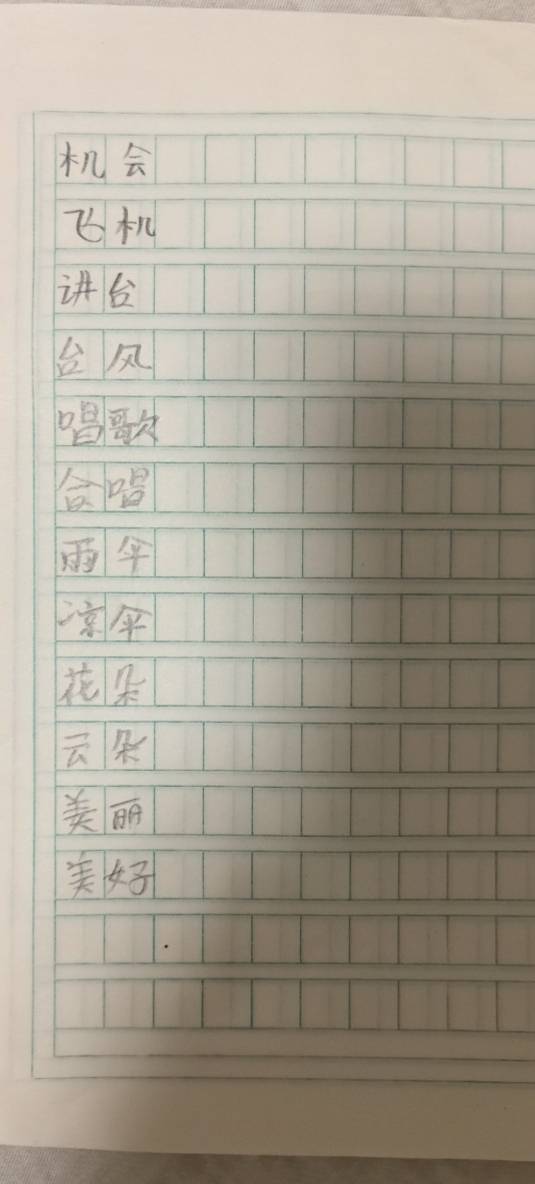 机会
飞机
讲台
台风
唱歌
合唱
雨伞
凉伞
花朵
云朵
美丽
美好